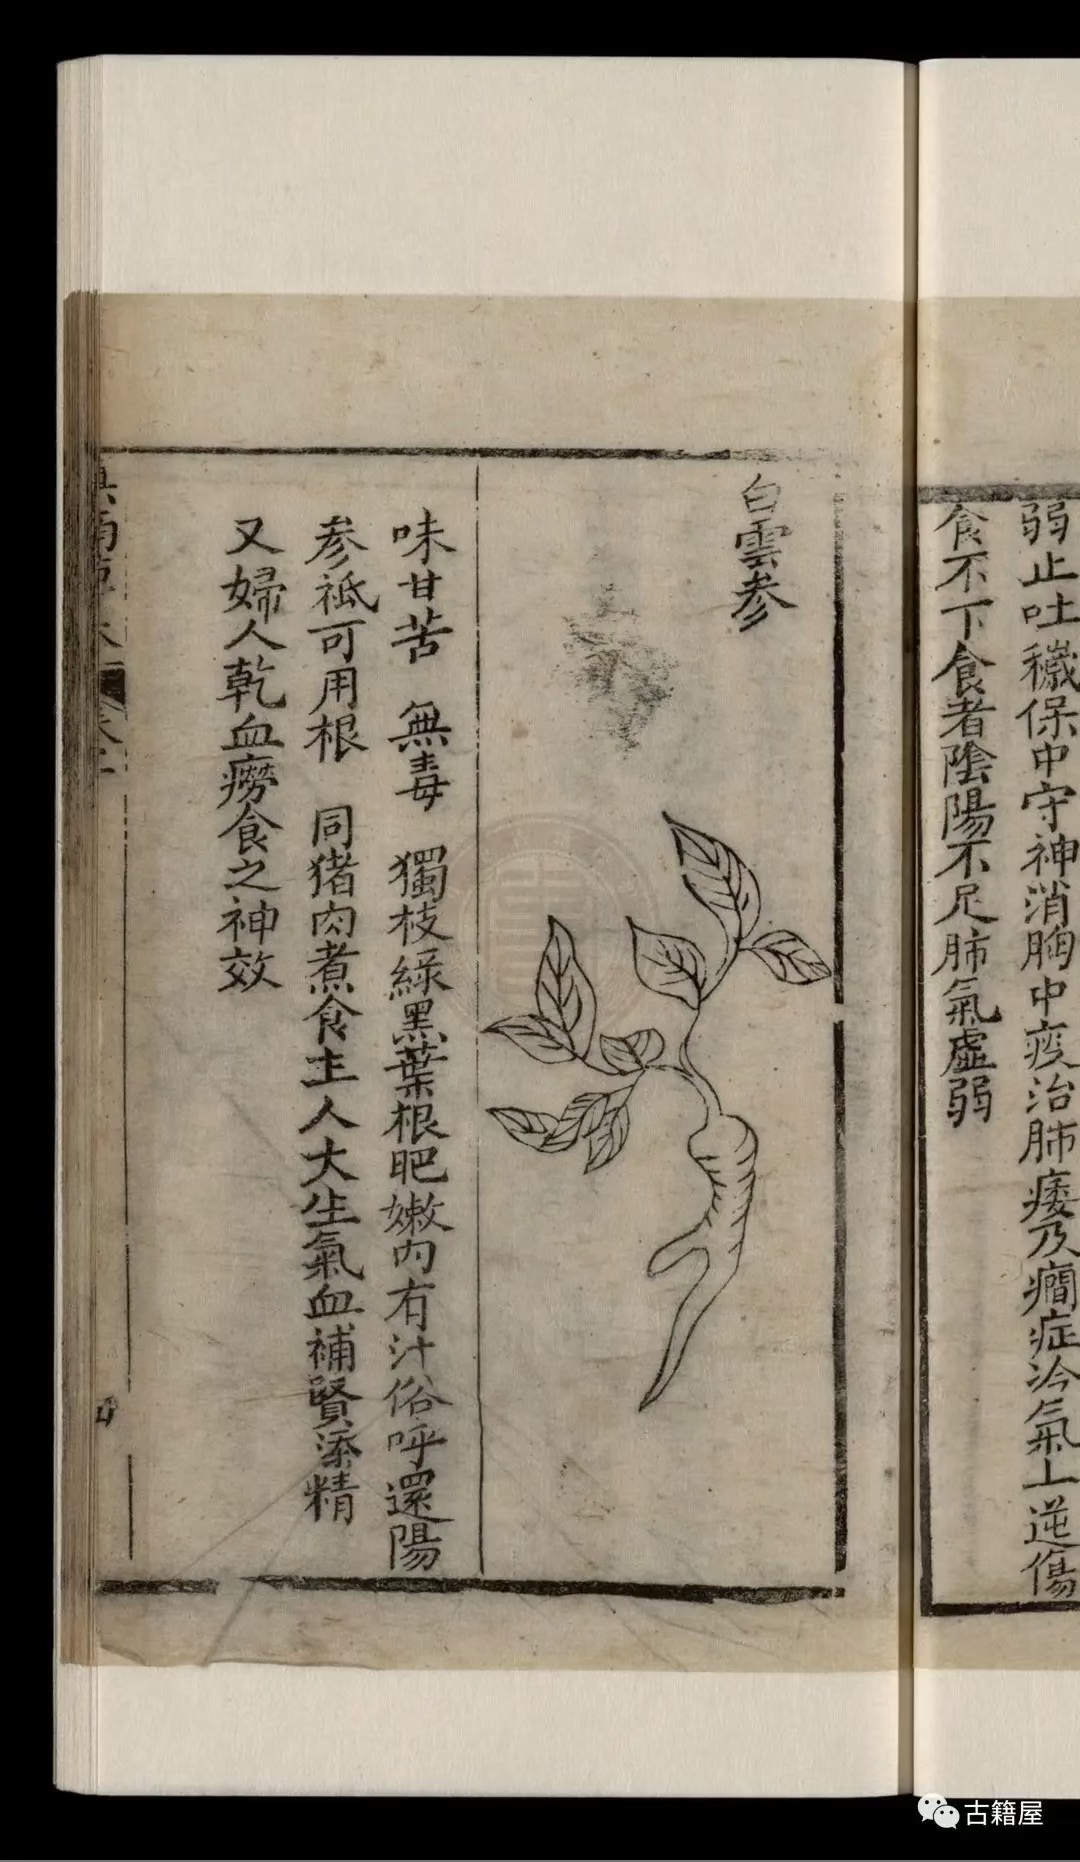 弱止吐穢保中守神消胸中痰治肺痿及癇症冷氣上逆傷
食不下食者陰陽不足肺氣虛弱
白雲参
味甘苦 無毒 獨枝綠黑葉根肥嫩内有汁俗呼還陽
参祗可用根 同猪肉煮食主人大生氣血補賢添精
又婦人乾血癆食之神效
古籍屋